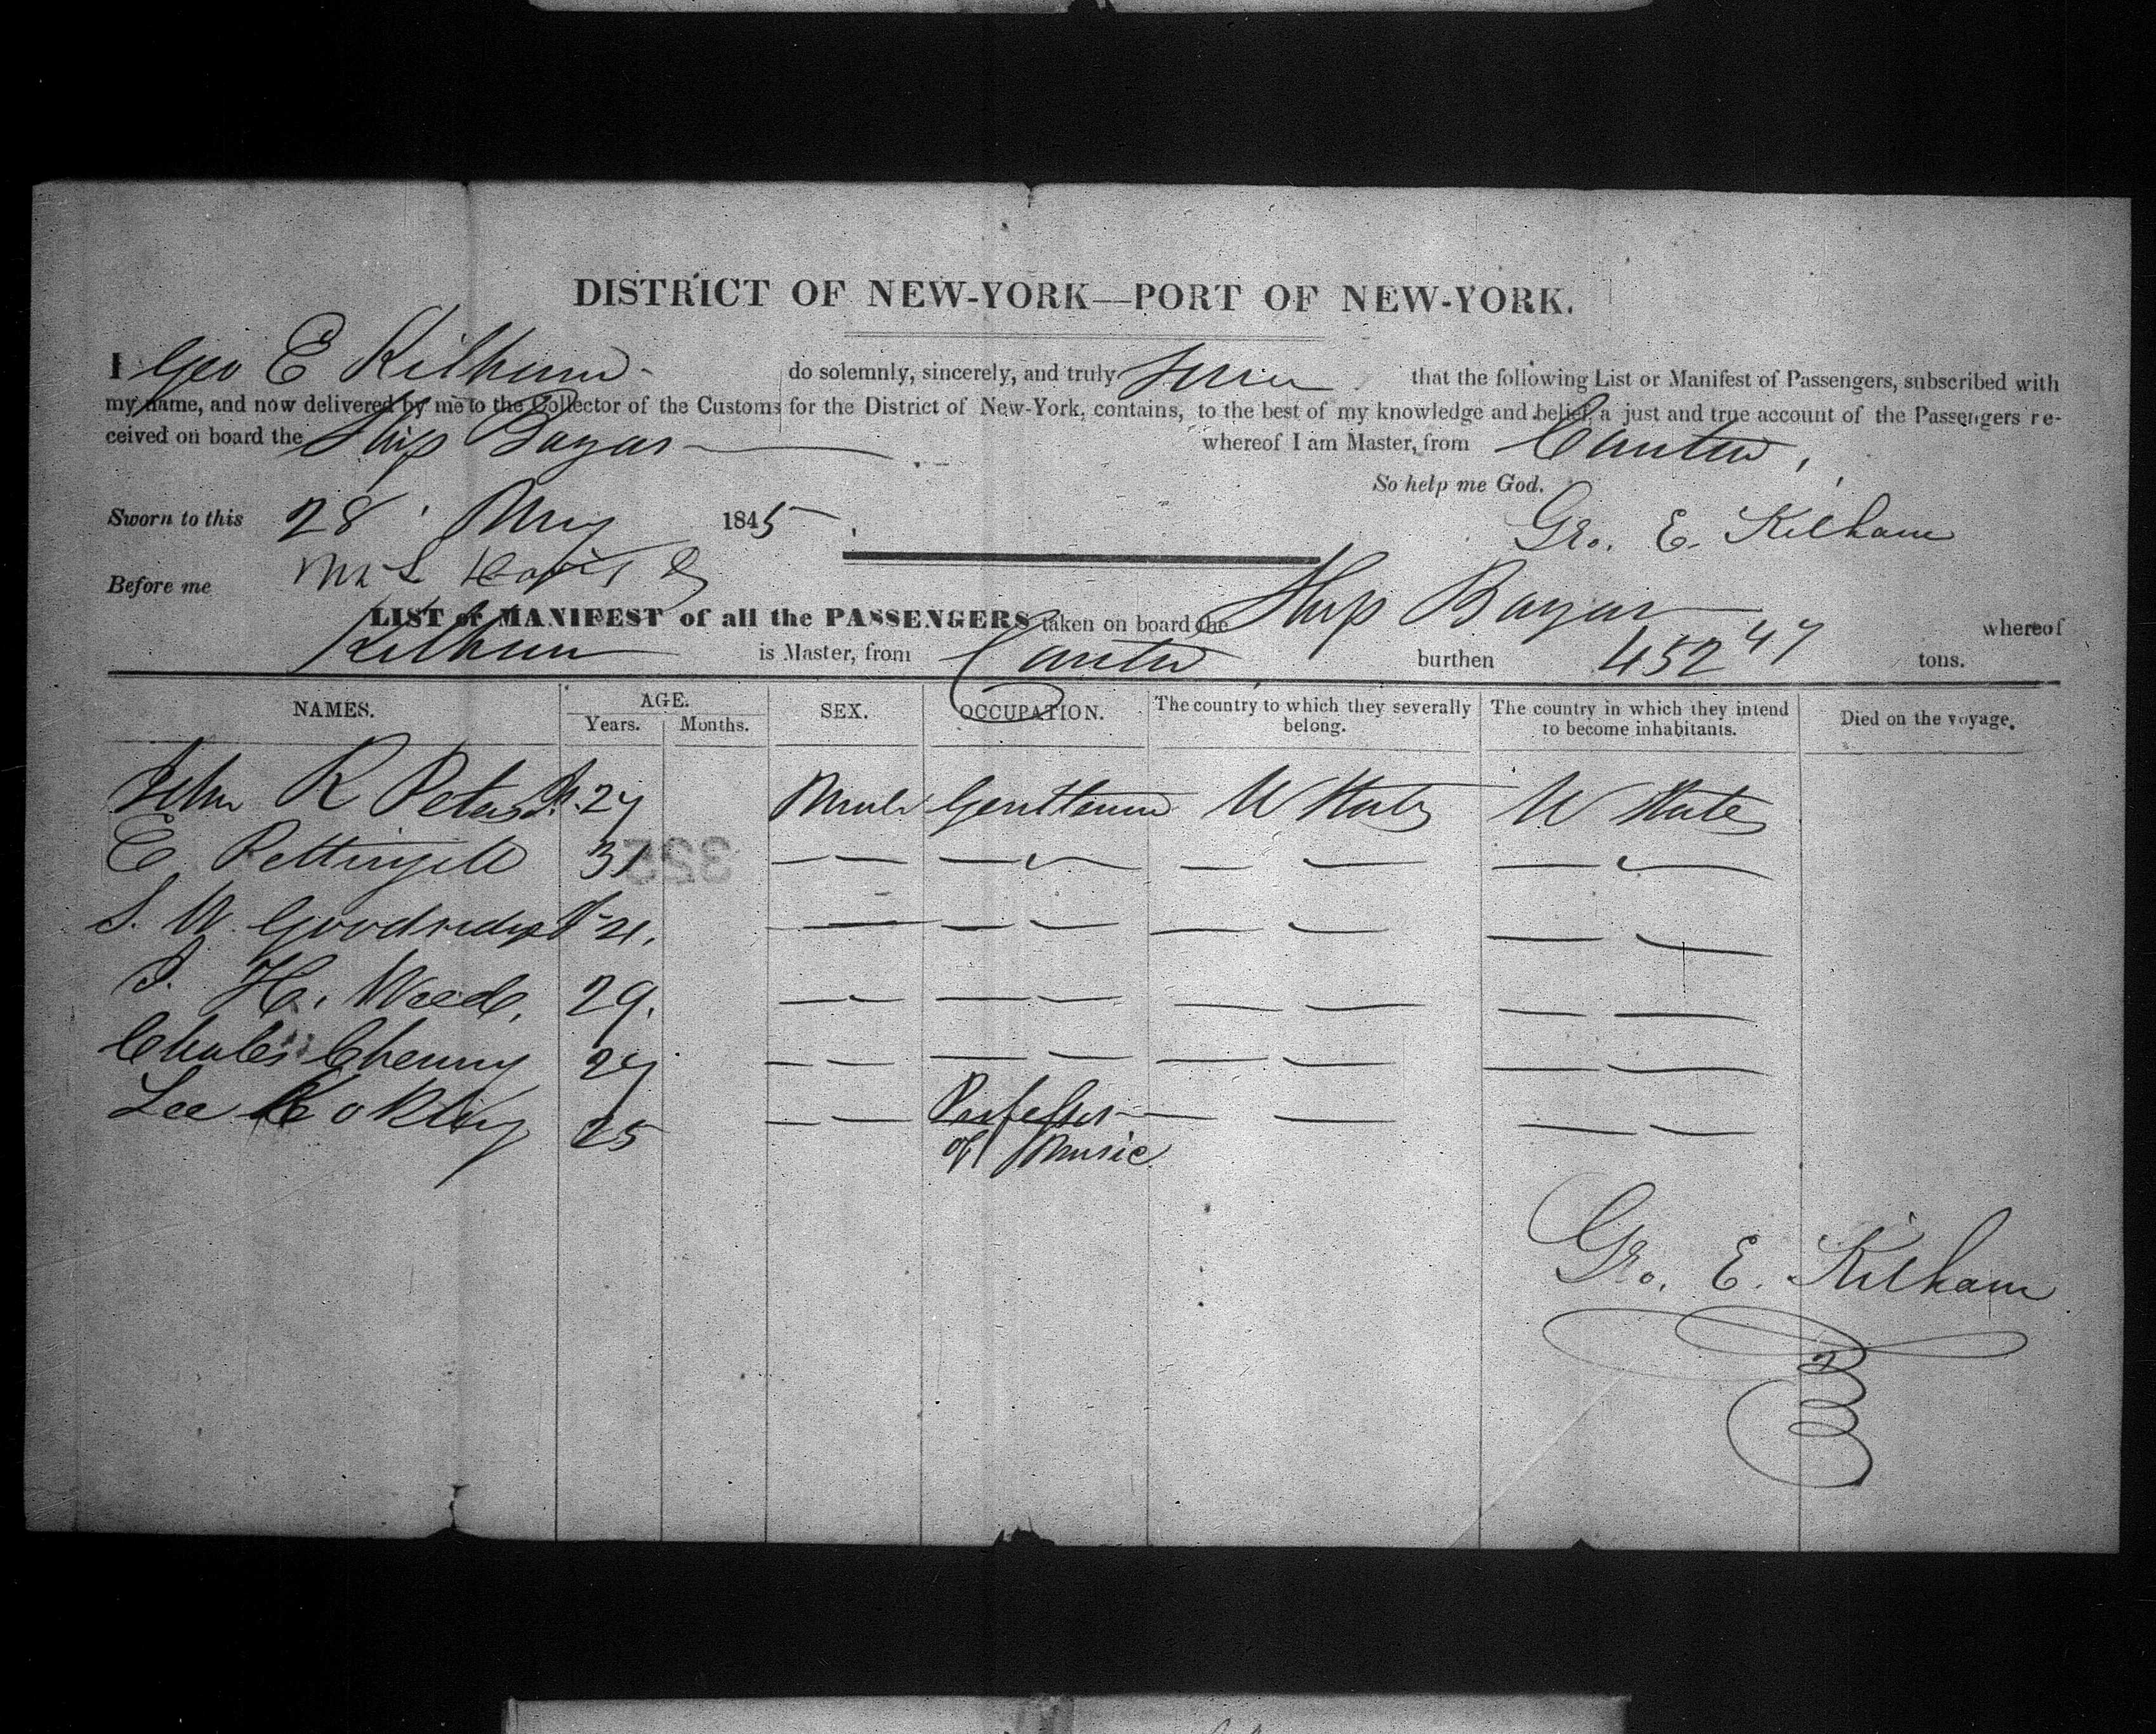 DISTRICT OF NEW-YORK—PORT OF NEW-YORK.
I Geo E Kilham do solemnly, sincerely, and truly swear that the following List or Manifest of Passengers, subscribed with
my name, and now delivered by me to the Collector of the Customs for the District of New-York, contains, to the best of my knowledge and belief, a just and true account of the Passengers re-
ceived on board the Ship Bazar whereof I am Master, from Canton,
So help me God.
Sworn to this 28 May 1845
Geo. E. Kilham
Before me
LIST or MANIFEST of all the PASSENGERS taken on board the Ship Bazar whereof
Kilham is Master, from Canton burthen 452 47 tons.
NAMES. AGE. Years. Months. SEX. OCCUPATION. The country to which they severally belong. The country in which they intend to become inhabitants. Died on the voyage.
John R Peters Jr. 27 Male Gentleman U States U States
E Pettingill 31
325
S. W. Goodridge Jr 21.
J. H. Weed. 29.
Charles Chenny 27
Lee 25 Professor
of Music
Geo. E. Kilham